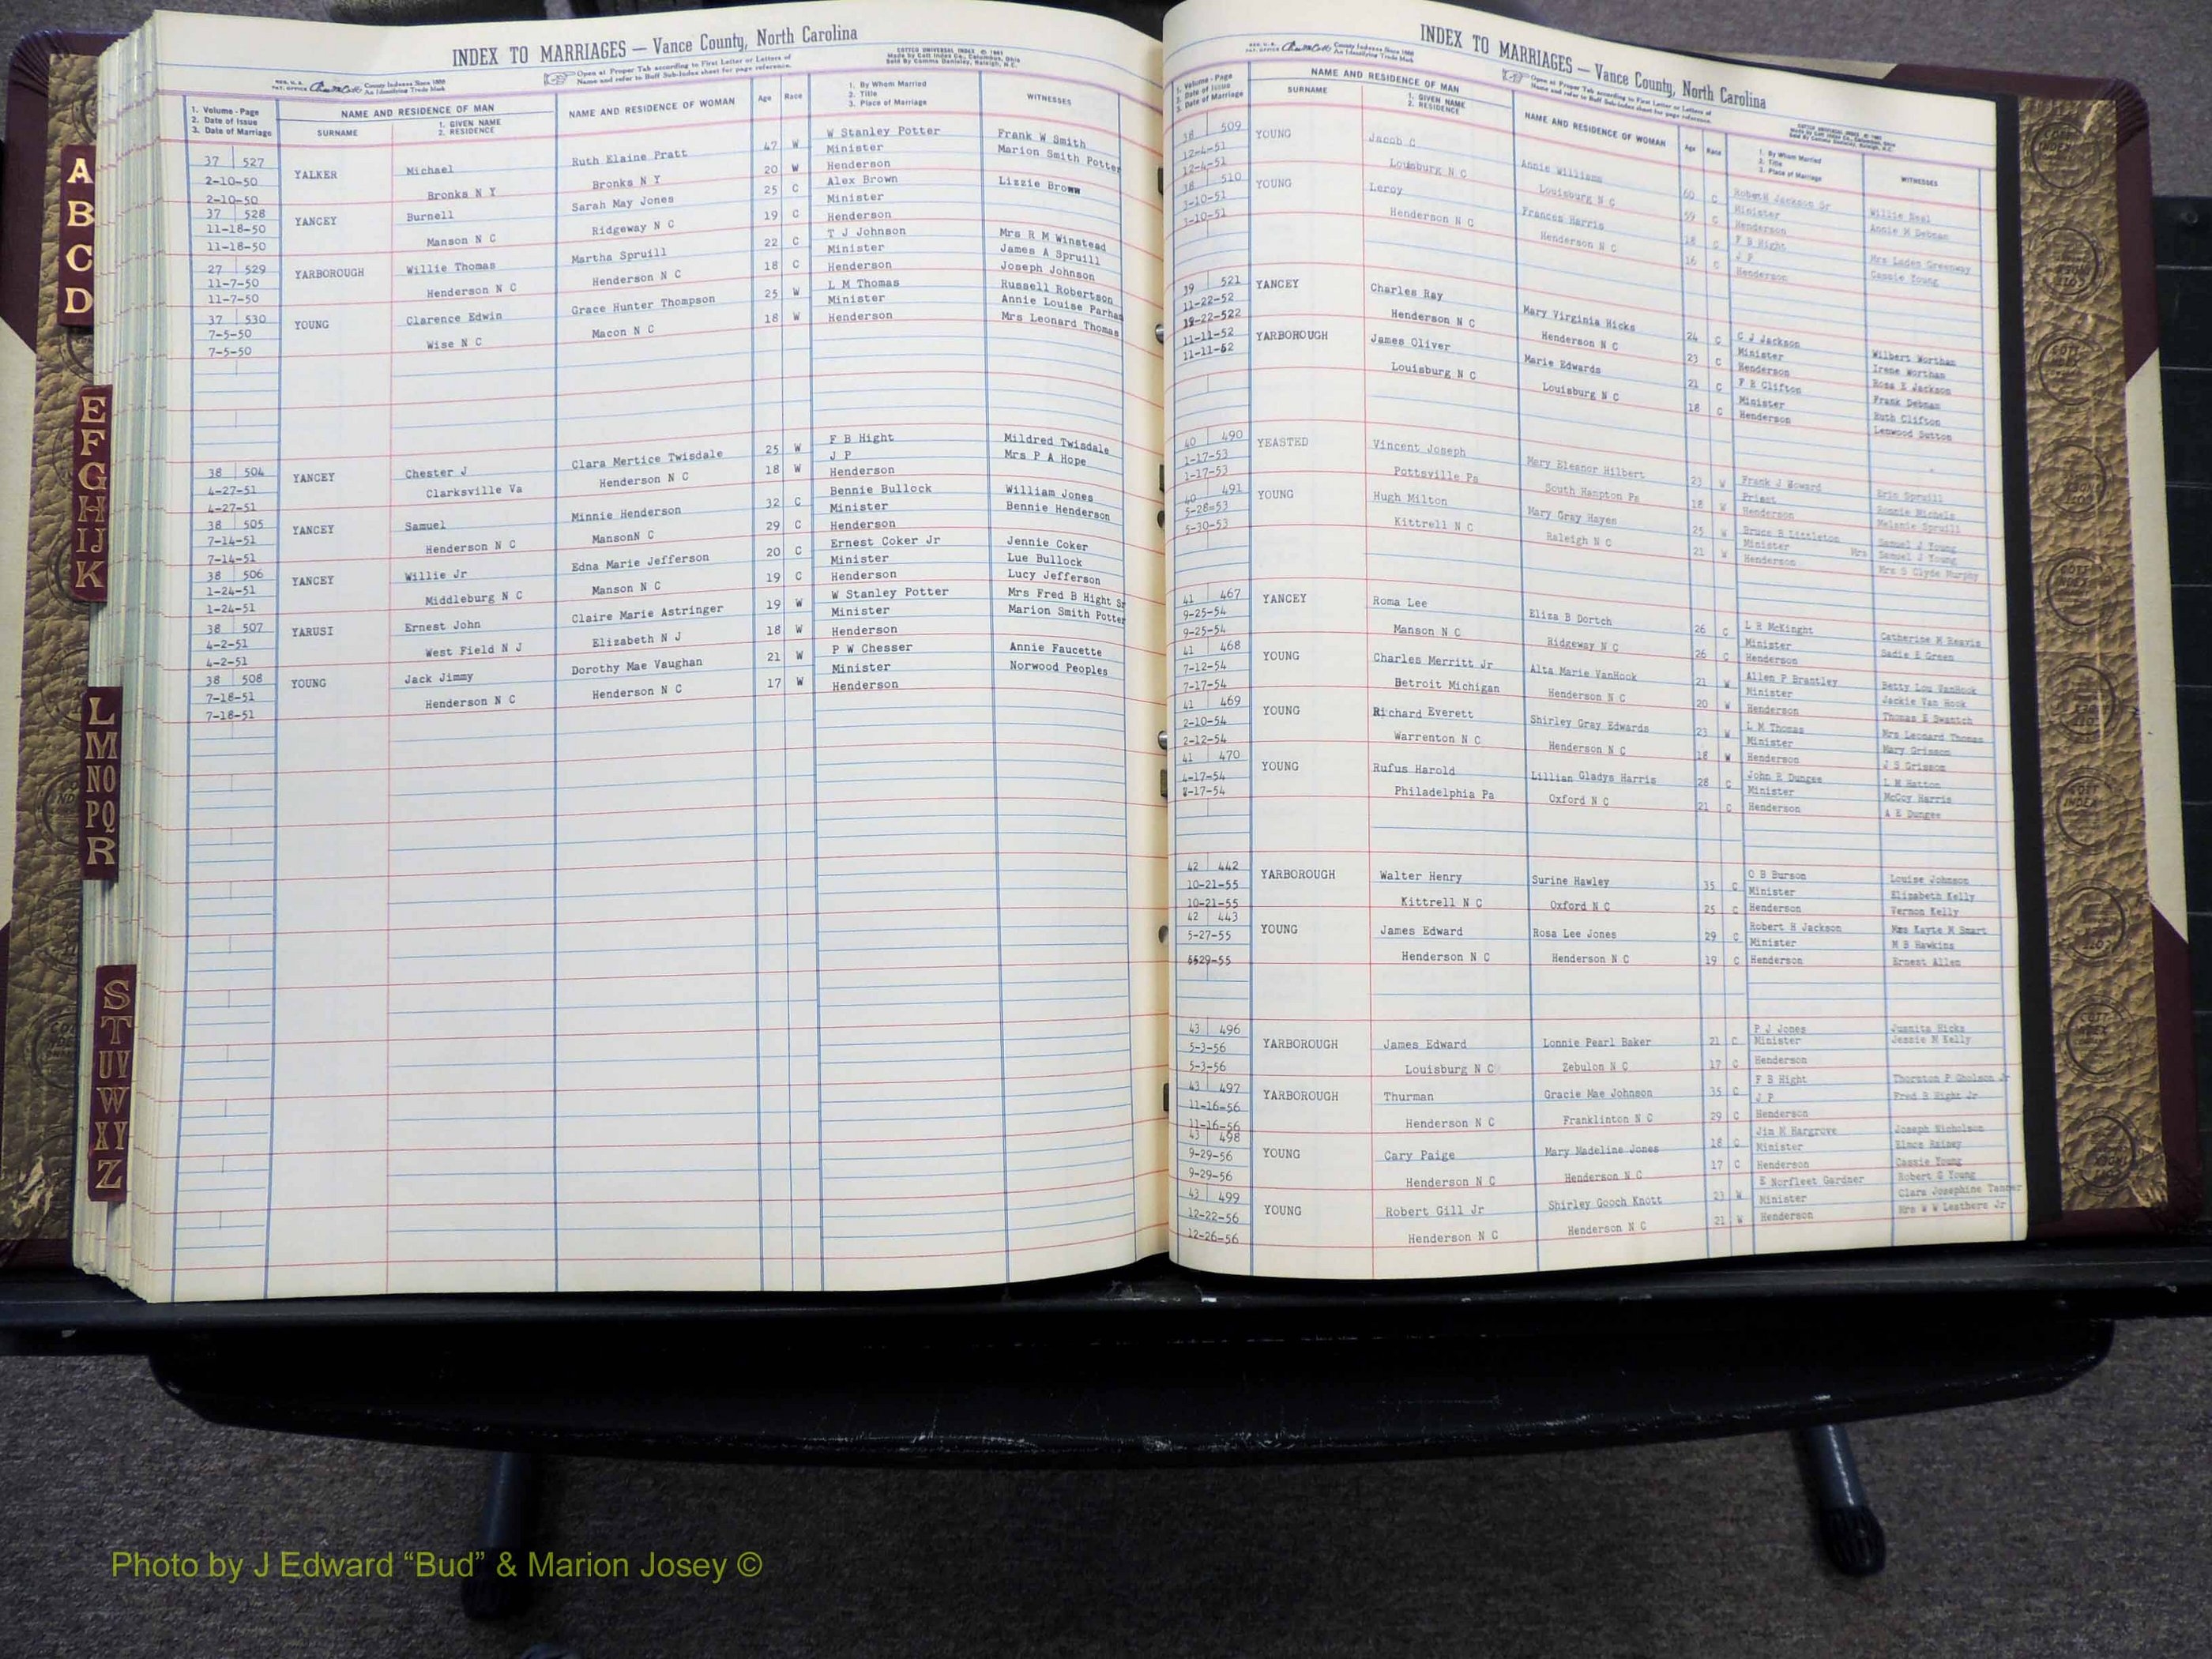 INDEX TO MARRIAGES — Vance County, North Carolina
Open at Proper Tab according to First Letter or Letters of
Name and refer to Buff Sub-Index sheet for page reference.
1. Volume - Page
2. Date of Issue
3. Date of Marriage
NAME AND RESIDENCE OF MAN
SURNAME
1. GIVEN NAME
2. RESIDENCE
NAME AND RESIDENCE OF WOMAN
Age
Race
1. By Whom Married
2. Title
3. Place of Marriage
WITNESSES
37 527 YALKER Michael Ruth Elaine Pratt 47 W W Stanley Potter Frank W Smith
2-10-50 Bronks N Y Bronks N Y 20 W Minister Marion Smith Potter
2-10-50 Henderson
37 528 YANCEY Burnell Sarah May Jones 25 C Alex Brown Lizzie Brown
11-18-50 Manson N C Ridgeway N C 19 C Minister
11-18-50 Henderson
27 529 YARBOROUGH Willie Thomas Martha Spruill 22 C T J Johnson Mrs R M Winstead
11-7-50 Henderson N C Henderson N C 18 C Minister James A Spruill
11-7-50 Henderson Joseph Johnson
37 530 YOUNG Clarence Edwin Grace Hunter Thompson 25 W L M Thomas Russell Robertson
7-5-50 Wise N C Macon N C 18 W Minister Annie Louise Parham
7-5-50 Henderson Mrs Leonard Thomas
38 504 YANCEY Chester J Clara Mertice Twisdale 25 W F B Hight Mildred Twisdale
4-27-51 Clarksville Va Henderson N C 18 W J P Mrs P A Hope
4-27-51 Henderson
38 505 YANCEY Samuel Minnie Henderson 32 C Bennie Bullock William Jones
7-14-51 Henderson N C MansonN C 29 C Minister Bennie Henderson
7-14-51 Henderson
38 506 YANCEY Willie Jr Edna Marie Jefferson 20 C Ernest Coker Jr Jennie Coker
1-24-51 Middleburg N C Manson N C 19 C Minister Lue Bullock
1-24-51 Henderson Lucy Jefferson
38 507 YARUSI Ernest John Claire Marie Astringer 19 W W Stanley Potter Mrs Fred B Hight Sr
4-2-51 West Field N J Elizabeth N J 18 W Minister Marion Smith Potter
4-2-51 Henderson
38 508 YOUNG Jack Jimmy Dorothy Mae Vaughan 21 W P W Chesser Annie Faucette
7-18-51 Henderson N C Henderson N C 17 W Minister Norwood Peoples
7-18-51 Henderson
INDEX TO MARRIAGES — Vance County, North Carolina
Open at Proper Tab according to First Letter or Letters of
Name and refer to Buff Sub-Index sheet for page reference.
1. Volume - Page
2. Date of Issue
3. Date of Marriage
NAME AND RESIDENCE OF MAN
SURNAME
1. GIVEN NAME
2. RESIDENCE
NAME AND RESIDENCE OF WOMAN
Age
Race
1. By Whom Married
2. Title
3. Place of Marriage
WITNESSES
38 509 YOUNG Jacob C Annie Williams 60 C Robert H Jackson Sr Willie Neal
12-4-51 Louisburg N C Louisburg N C 59 C Minister Annie M Debnam
12-4-51 Henderson
38 510 YOUNG Leroy Frances Harris 18 C F B Hight Mrs Laden Greenway
3-10-51 Henderson N C Henderson N C 16 C J P Cassie Young
3-10-51 Henderson
39 521 YANCEY Charles Ray Mary Virginia Hicks 24 C C J Jackson Wilbert Worthan
11-22-52 Henderson N C Henderson N C 23 C Minister Irene Worthan
Henderson Rosa E Jackson
11-11-52 YARBOROUGH James Oliver Marie Edwards 21 C F R Clifton Frank Debnam
11-11-52 Louisburg N C Louisburg N C 18 C Minister Ruth Clifton
Henderson Lenwood Sutton
40 490 YEASTED Vincent Joseph Mary Eleanor Hilbert 23 W Frank J Howard Erin Spruill
1-17-53 Pottsville Pa South Hampton Pa 18 W Priest Ronnie Michels
1-17-53 Henderson Melanie Spruill
40 491 YOUNG Hugh Milton Mary Gray Hayes 25 W Bruce B Littleton Samuel J Young
5-28=53 Kittrell N C Raleigh N C 21 W Minister Mrs Samuel J Young
5-30-53 Henderson Mrs S Clyde Murphy
41 467 YANCEY Roma Lee Eliza B Dortch 26 C L R McKinght Catherine M Reavis
9-25-54 Manson N C Ridgeway N C 26 C Minister Sadie E Green
9-25-54 Henderson
41 468 YOUNG Charles Merritt Jr Alta Marie VanHook 21 W Allen P Brantley Betty Lou VanHook
7-12-54 Detroit Michigan Henderson N C 20 W Minister Jackie Van Hook
7-17-54 Henderson Thomas E Swantch
41 469 YOUNG Richard Everett Shirley Gray Edwards 23 W L M Thomas Mrs Leonard Thomas
2-10-54 Warrenton N C Henderson N C 18 W Minister Mary Grissom
2-12-54 Henderson J S Grissom
41 470 YOUNG Rufus Harold Lillian Gladys Harris 28 C John R Dungee L M Hatton
4-17-54 Philadelphia Pa Oxford N C 21 C Minister McCoy Harris
-17-54 Henderson A E Dungee
42 442 YARBOROUGH Walter Henry Surine Hawley 35 C O B Burson Louise Johnson
10-21-55 Kittrell N C Oxford N C 25 C Minister Elizabeth Kelly
10-21-55 Henderson Vernon Kelly
42 443 YOUNG James Edward Rosa Lee Jones 29 C Robert H Jackson Mrs Kayte M Smart
5-27-55 Henderson N C Henderson N C 19 C Minister M B Hawkins
5529-55 Henderson Ernest Allen
43 496 YARBOROUGH James Edward Lonnie Pearl Baker 21 C P J Jones Juanita Hicks
5-3-56 Louisburg N C Zebulon N C 17 C Minister Jessie M Kelly
5-3-56 Henderson
43 497 YARBOROUGH Thurman Gracie Mae Johnson 35 C F B Hight Thornton P Gholson Jr
11-16=56 Henderson N C Franklinton N C 29 C J P Fred B Hight Jr
11-16-56 Henderson
43 498 YOUNG Cary Paige Mary Madeline Jones 18 C Jim M Hargrove Joseph Nicholson
9-29-56 Henderson N C Henderson N C 17 C Minister Elnce Rainey
9-29-56 Henderson Cassie Young
43 499 YOUNG Robert Gill Jr Shirley Gooch Knott 23 W E Norfleet Gardner Robert G Young
12-22-56 Henderson N C Henderson N C 21 W Minister Clara Josephine Tanner
12-26-56 Henderson Mrs W W Leathers Jr
A
B
C
D
E
F
G
H
IJ
K
L
M
NO
PQ
R
S
T
UV
W
XY
Z
Photo by J Edward “Bud” & Marion Josey ©